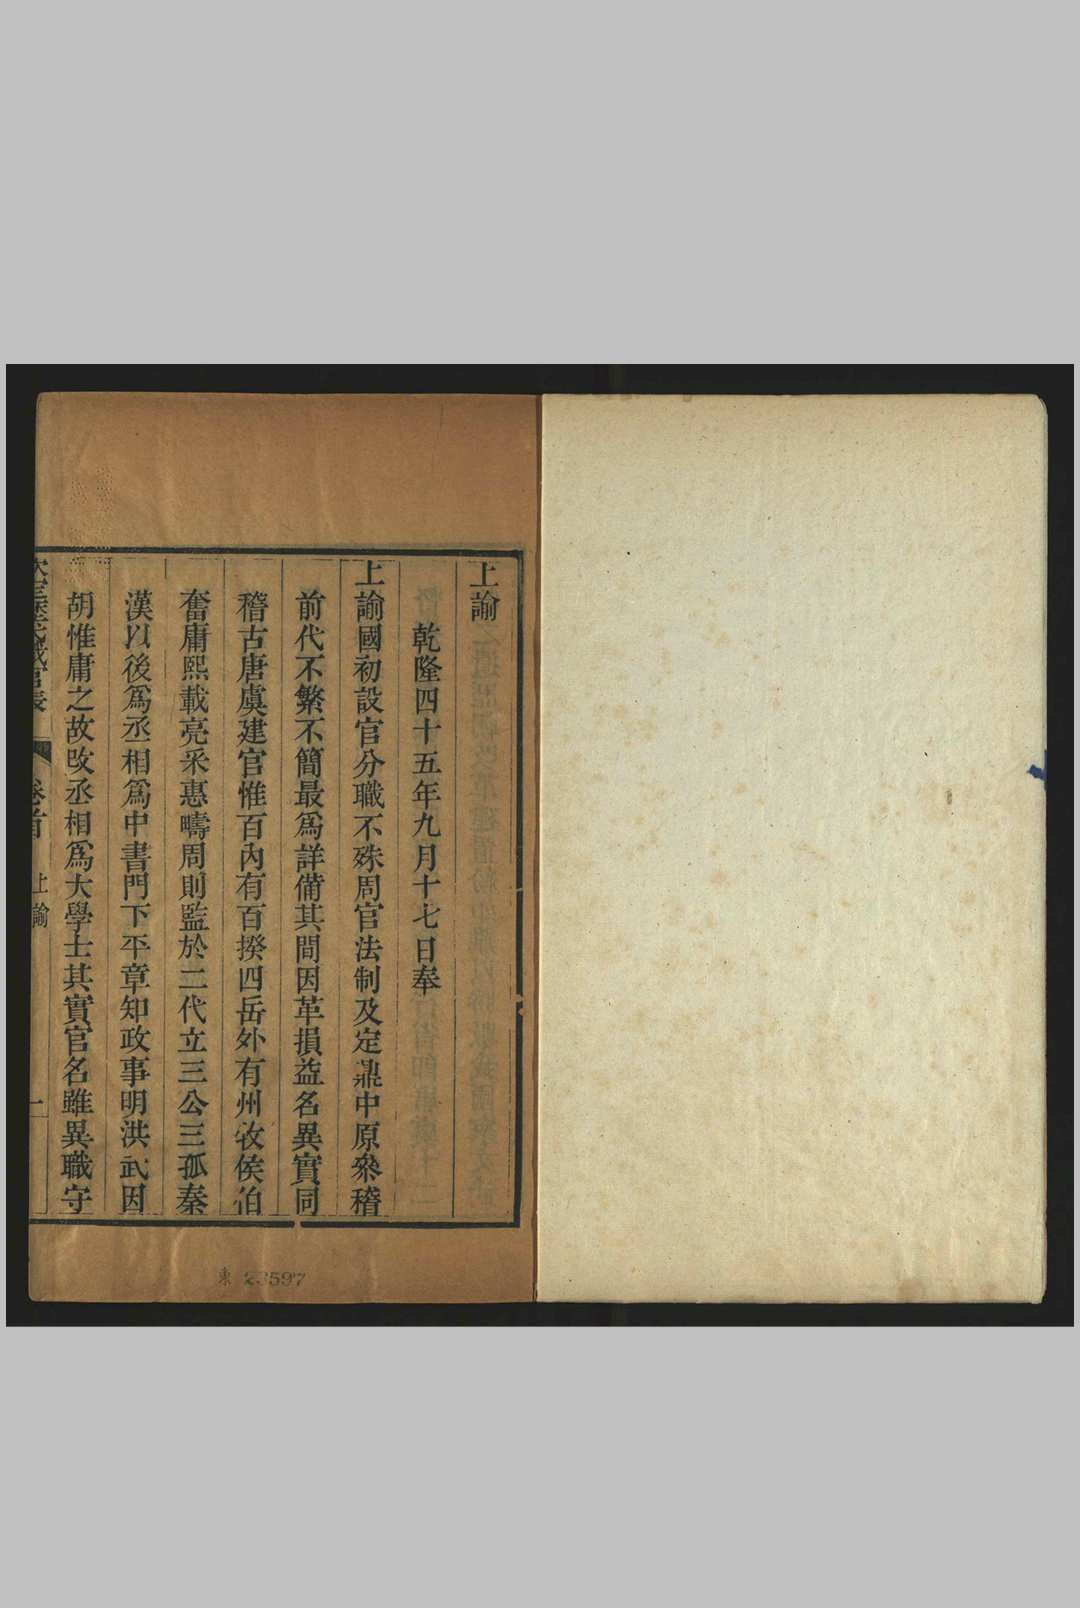 上諭
乾隆四十五年九月十七日奉
上諭國初設官分職不殊周官法制及定鼎中原參稽
前代不繁不簡最爲詳備其間因革損益名異實同
稽古唐虞建官惟百內有百揆四岳外有州牧侯伯
奮庸熙載亮采惠疇周則監於二代立三公三孤秦
漢以後爲丞相爲中書門下平章知政事明洪武因
胡惟庸之故改丞相爲大學士其實官名雖異職守
欽定歷代職官表 卷首 上諭 一
東 23597